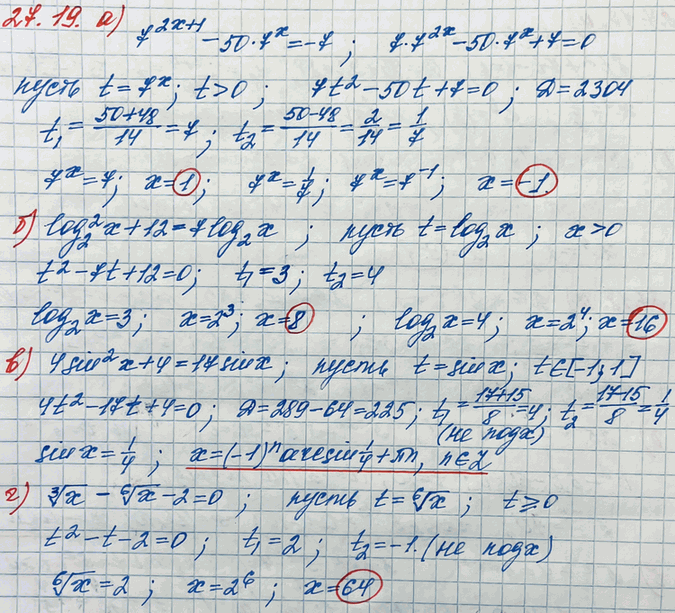 27.19. а) 7^(2x+1) − 50·7^x = −7 ; 7·7^(2x) − 50·7^x + 7 = 0
пусть t = 7^x ; t > 0 ; 7t² − 50t + 7 = 0 ; D = 2304
t₁ = (50+48)/14 = 7 ; t₂ = (50−48)/14 = 2/14 = 1/7
7^x = 7 ; x = 1 ; 7^x = 1/7 ; 7^x = 7^(−1) ; x = −1.
б) log₂²x + 12 = 7log₂x ; пусть t = log₂x ; x > 0
t² − 7t + 12 = 0 ; t₁ = 3 ; t₂ = 4
log₂x = 3 ; x = 2³ ; x = 8 ; log₂x = 4 ; x = 2⁴ ; x = 16
в) 4sin²x + 4 = 17sinx ; пусть t = sinx ; t∈[−1;1]
4t² − 17t + 4 = 0 ; D = 289 − 64 = 225 ; t₁ = (17+15)/8 = 4 ; t₂ = (17−15)/8 = 1/4
(не подх)
sinx = 1/4 ; x = (−1)ⁿ arcsin 1/4 + πn, n∈Z
г) ∛x − ⁶√x − 2 = 0 ; пусть t = ⁶√x ; t ⩾ 0
t² − t − 2 = 0 ; t₁ = 2 ; t₂ = −1. (не подх)
⁶√x = 2 ; x = 2⁶ ; x = 64